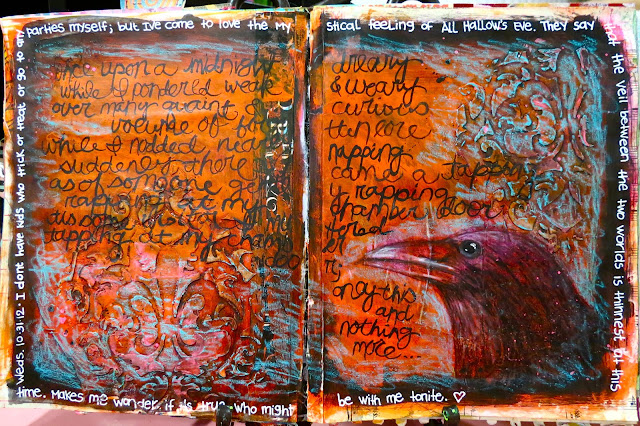 Weds. 10.31.12. I dont have kids who trick or treat or go to any
parties myself; but I've come to love the My stical feeling of All Hallow's Eve. They say
that the veil between the two worlds is thinnest at this
time. Makes me wonder if its true-who might be with me tonite. ♡
once upon a midnight dreary
while I pondered weak & weary
over many quaint curious
volume of
while I nodded nea napping
suddenly there came a tapping
as of someone ge y rapping
rapping at my chamber door
tapping at my
only this
and
nothing
more....